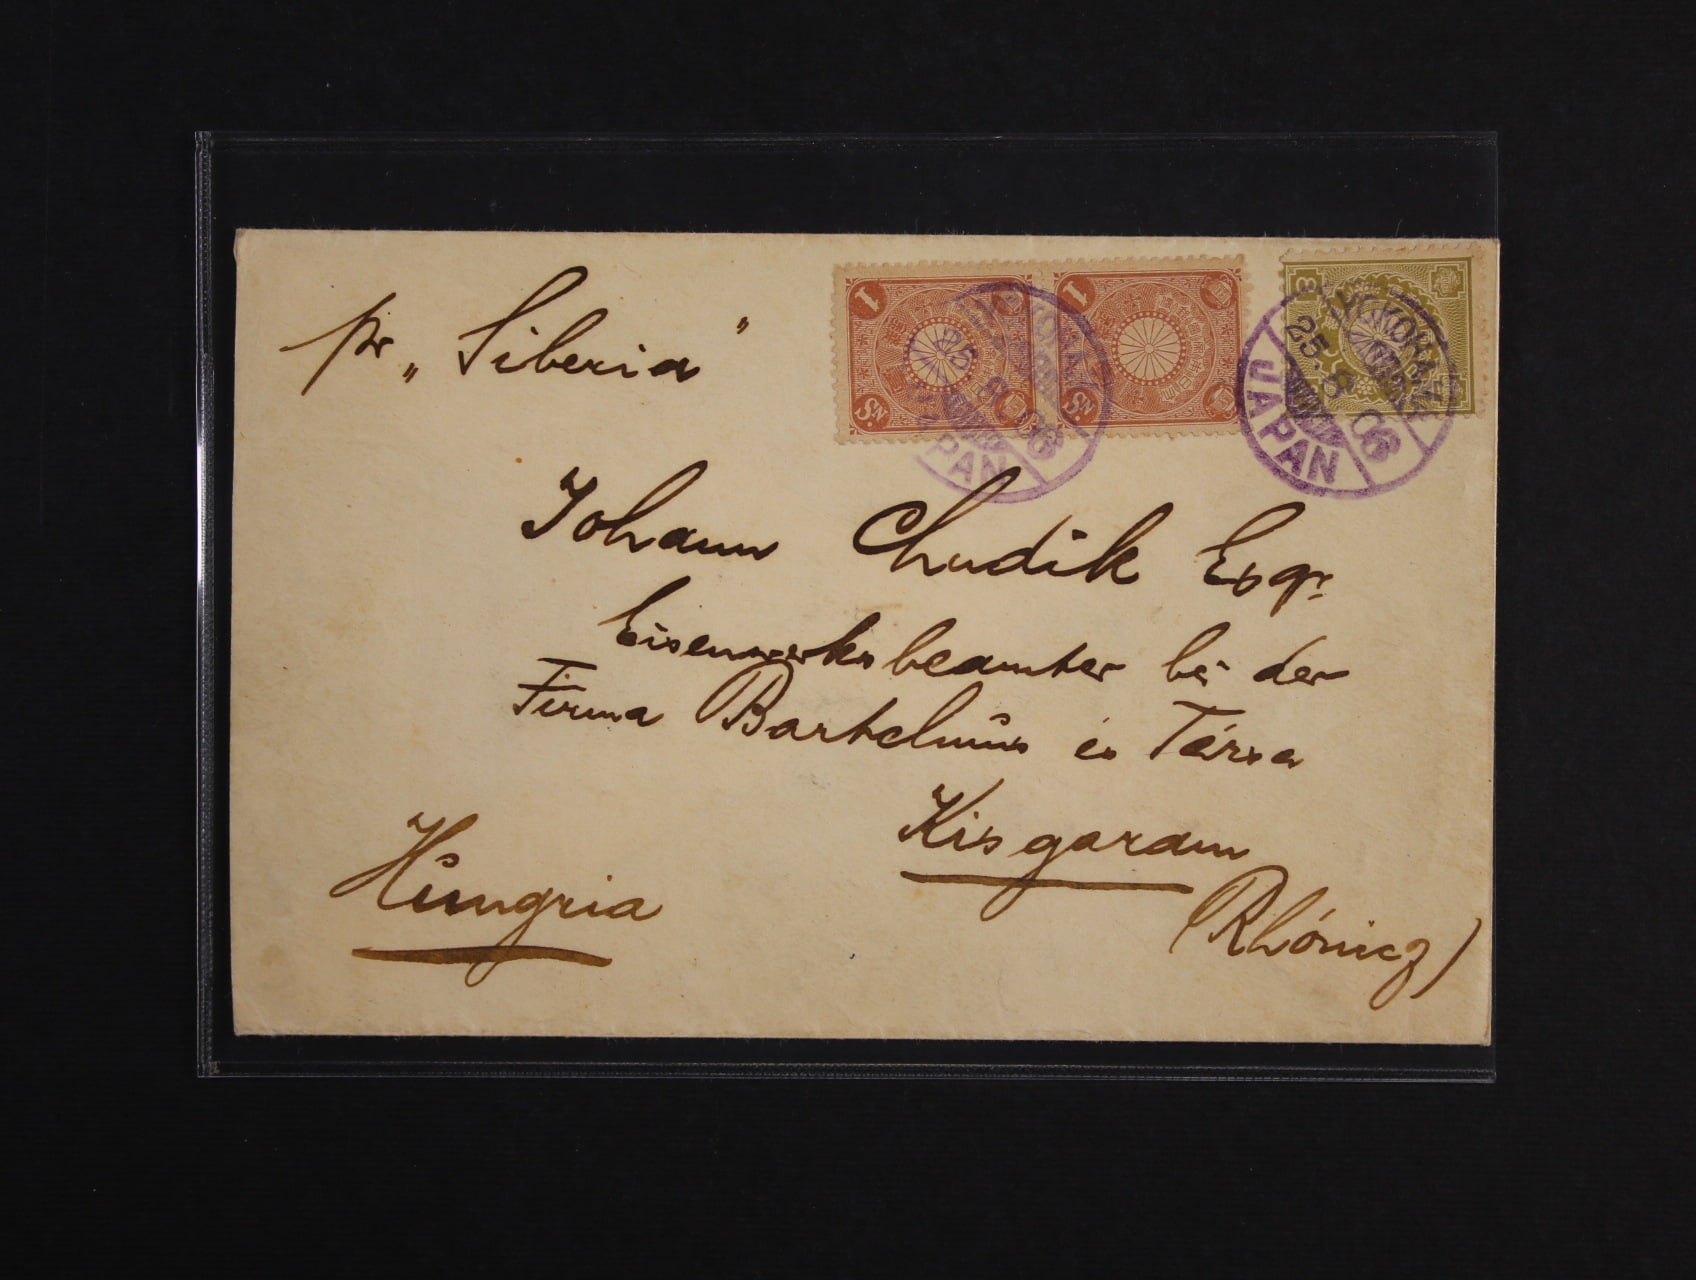 pr „Siberia"
1
Sn.
1
Sn.
3
YOKOHAMA
25 8 06
JAPAN
YOKOHAMA
25 8 06
JAPAN
Johann Chudik Esqr.
Eisenwerksbeamter bei der
Firma Bartelmus és Társa
Kisgaram
(Rhónicz)
Hungria